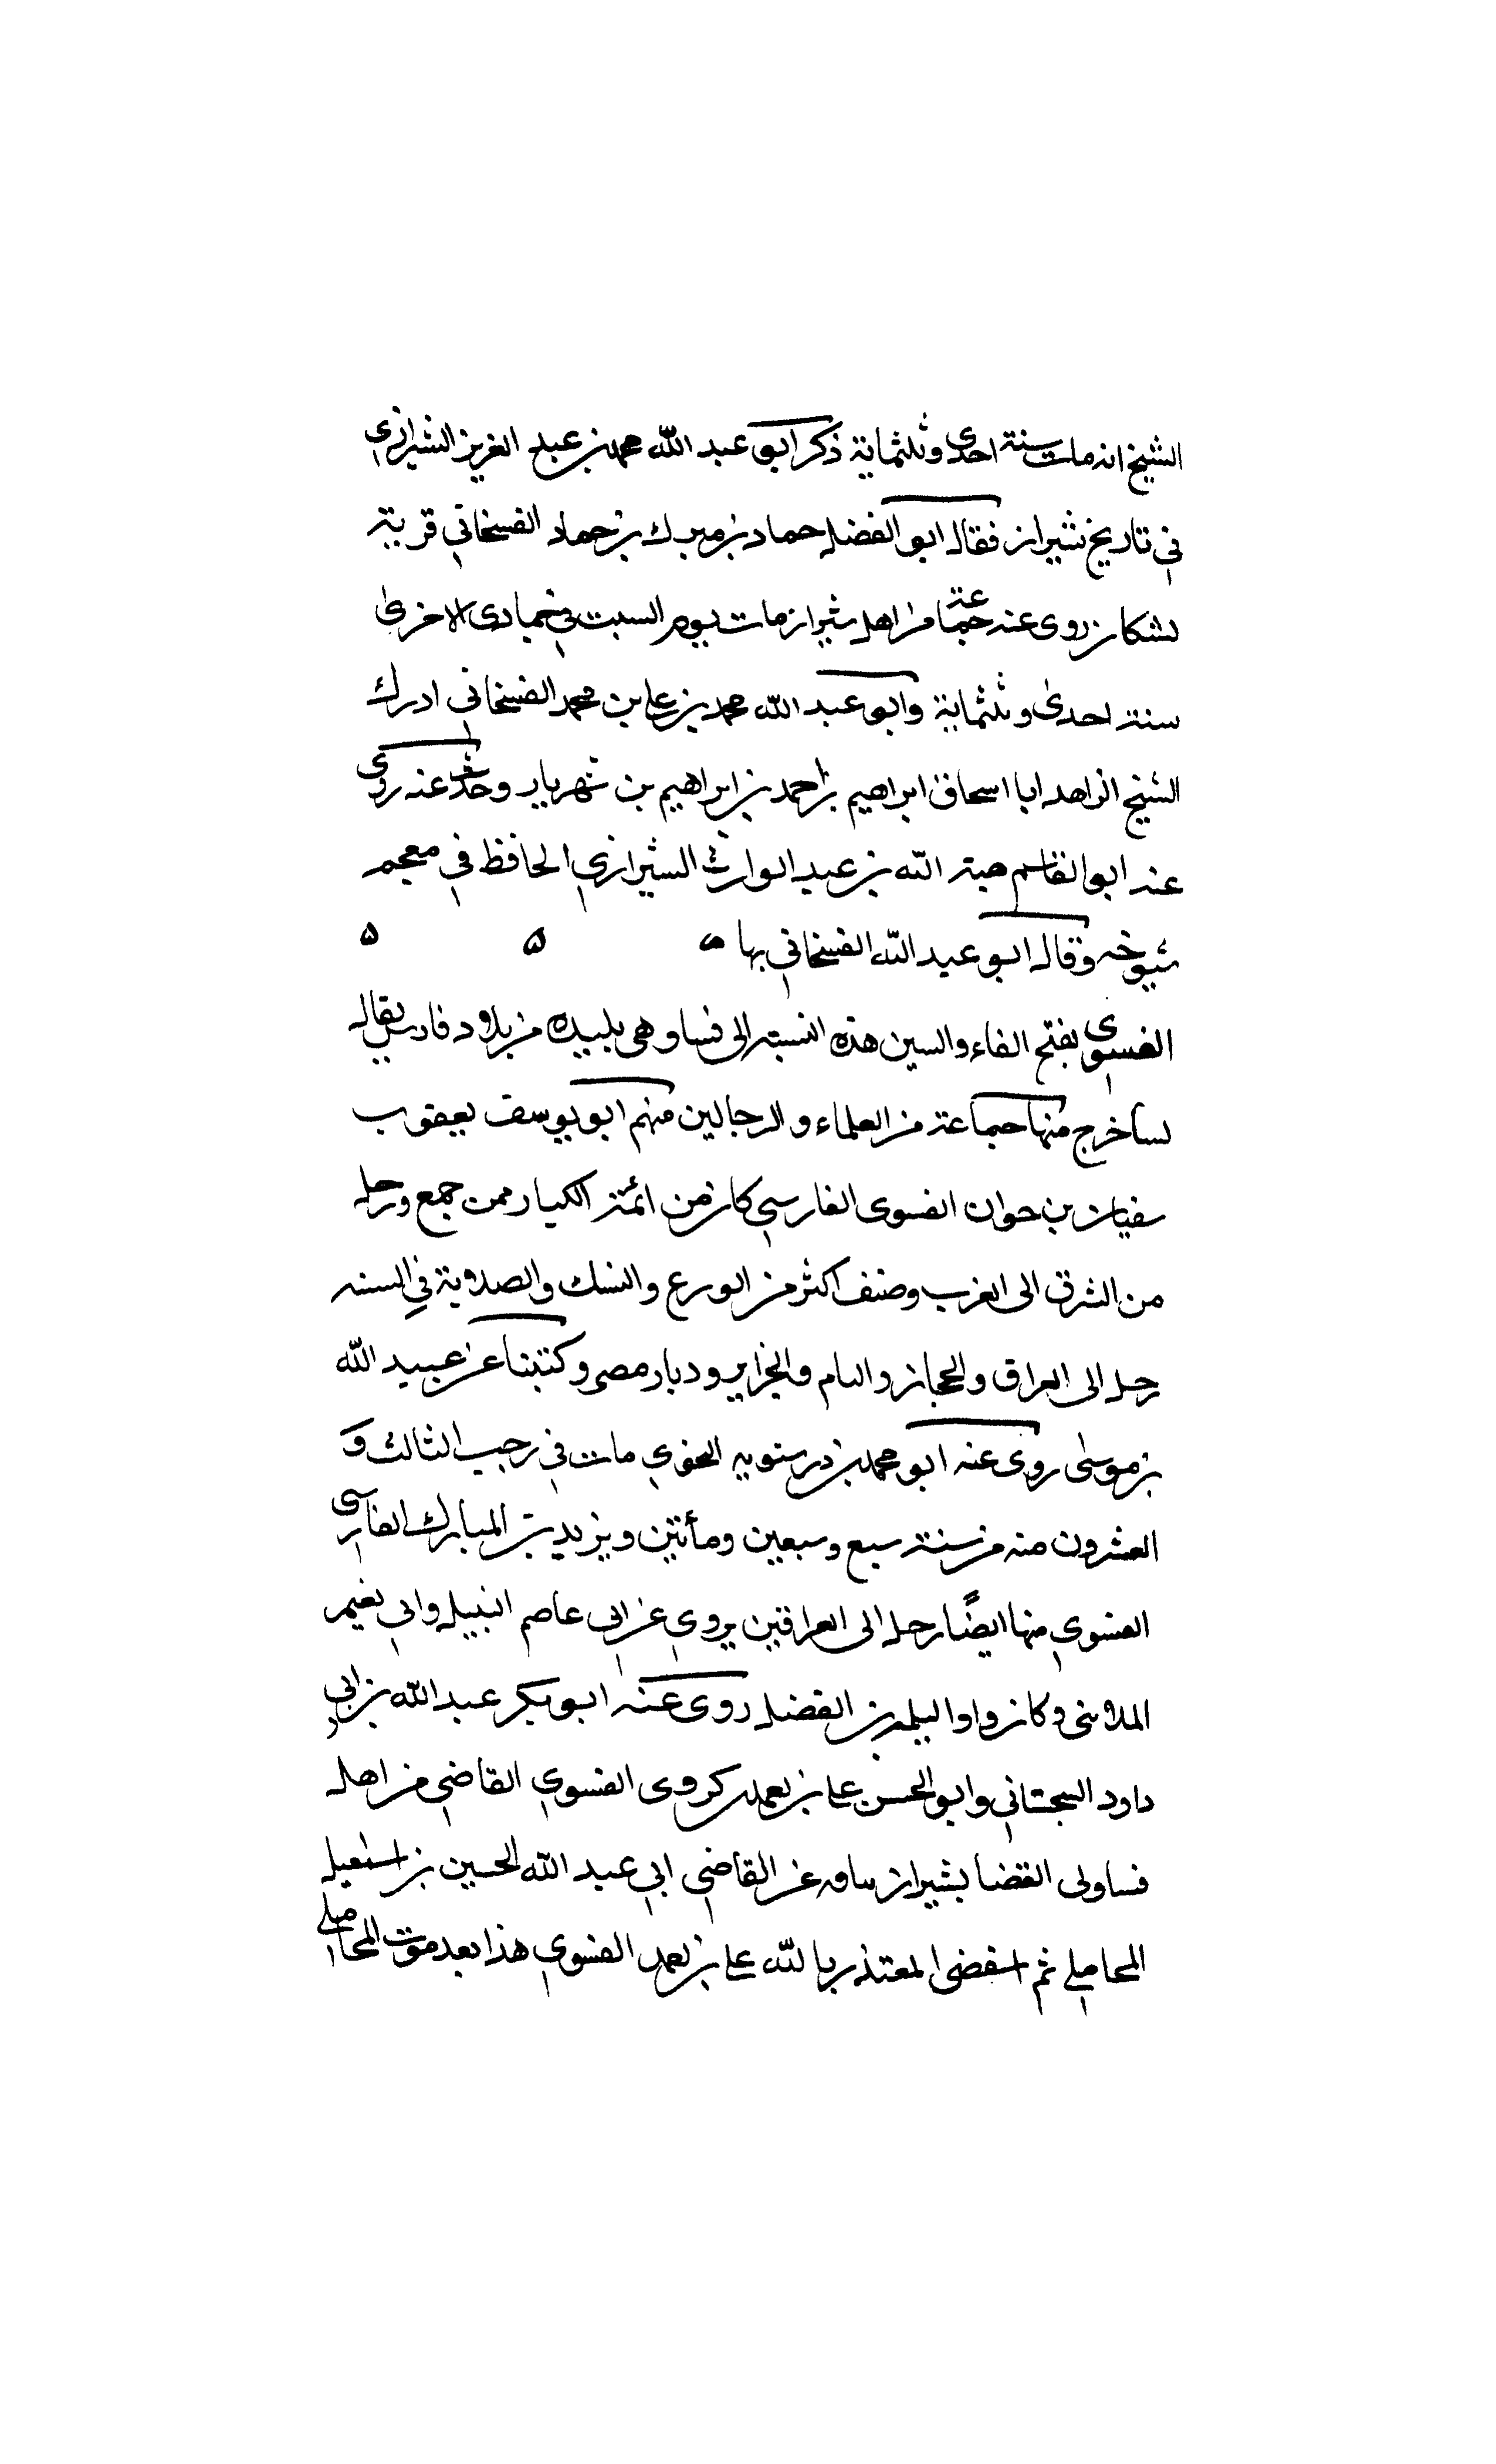 الشيخ انه مات سنة احدى وثلثماية ذكر ابو عبد الله محمد بن عبد العزيز الشيرازي
في تاريخ شيراز فقال ابو الفضل حماد بن مبرك بن حماد الفسنجاني قرية
لشكان روى عنه جماعة من اهل شيراز مات يوم السبت في جمادى الاخرى
سنة احدى وثلثماية وابو عبد الله محمد بن علي بن محمد الفسنجاني ادرك
الشيخ الزاهد ابا اسحاق ابراهيم بن احمد بن ابراهيم بن شهريار وحدث عنه روى
عنه ابو القاسم هبة الله بن عبد الوارث الشيرازي الحافظ في معجم
شيوخه وقال ابو عبد الله الفسنجاني بها ۵ ۵ ۵
الفسوى بفتح الفاء والسين هذه النسبة الى فسا وهى بليدة من بلاد فارس يقال
لسا خرج منها جماعة من العلماء والرجالين منهم ابو يوسف يعقوب
سفيان بن جوان الفسوى الفارسي كان من ائمة الكبار ممن جمع ورحل
من الشرق الى الغرب وصنف اكثر من الورع والنسك والصلابة في السنة
رحل الى العراق والحجاز والسام والجزاير وديار مصر وكتبنا عن عبيد الله
بن موسى روى عنه ابو محمد بن درستويه النحوي مات في رجب الثالث و
العشرون منه من سنة سبع وسبعين ومأتين ويزيد بن المبارك الفارسى
الفسوي منها ايضًا رحل الى العراقين يروي عن ابي عاصم النبيل وابي نعيم
الملائى وكان روى عنه ابو بكر عبد الله بن ابي
داود السجستاني وابو الحسن علي بن كروى الفسوي القاضي من اهل
فسا ولى القضا بشيراز عن القاضي ابي عبد الله الحسين بن اسمعيل
المحاملي ثم المعتذر بالله علي بن الفسوي هذا بعد موت المحاملي